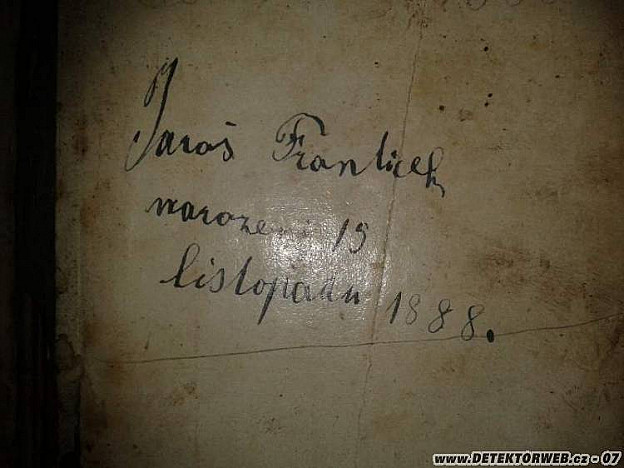 Jaroš Franticek
narozen 19
listopadu 1888.
www.DETEKTORWEB.cz - 07